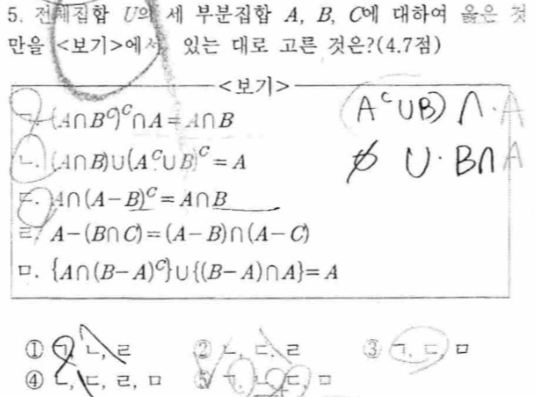 5. 전체집합 U의 세 부분집합 A, B, C에 대하여 옳은 것
만을 <보기>에서 있는 대로 고른 것은?(4.7점)
<보기>
ㄱ. (A∩Bᶜ)ᶜ∩A=A∩B
ㄴ. (A∩B)∪(Aᶜ∪B)ᶜ=A
ㄷ. A∩(A-B)ᶜ=A∩B
ㄹ. A-(B∩C)=(A-B)∩(A-C)
ㅁ. {A∩(B-A)ᶜ}∪{(B-A)∩A}=A
Aᶜ∪B) ∩·A
∅ ∪·B∩A
① ㄱ, ㄴ, ㄹ ② ㄴ, ㄷ, ㄹ ③ ㄱ, ㄷ, ㅁ
④ ㄴ, ㄷ, ㄹ, ㅁ ⑤ ㄱ, ㄴ, ㄷ, ㅁ